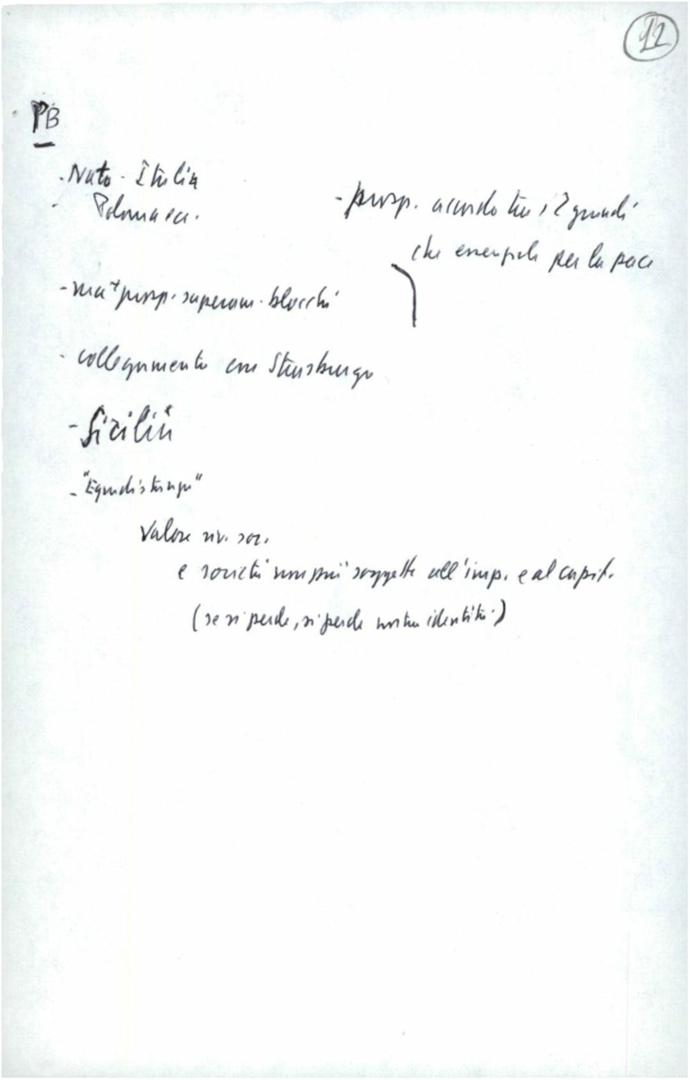 12
PB
- Nato - Italia
- prosp. accordo tra i 2 grandi
che per la pace
- ma + prosp. superam. blocchi
- collegamento con Strasburgo
- Sicilia
- "Equidistanza"
Valore riv. soc.
e società non più soggette all'imp. e al capit.
(se si perde, si perde nostra identità)